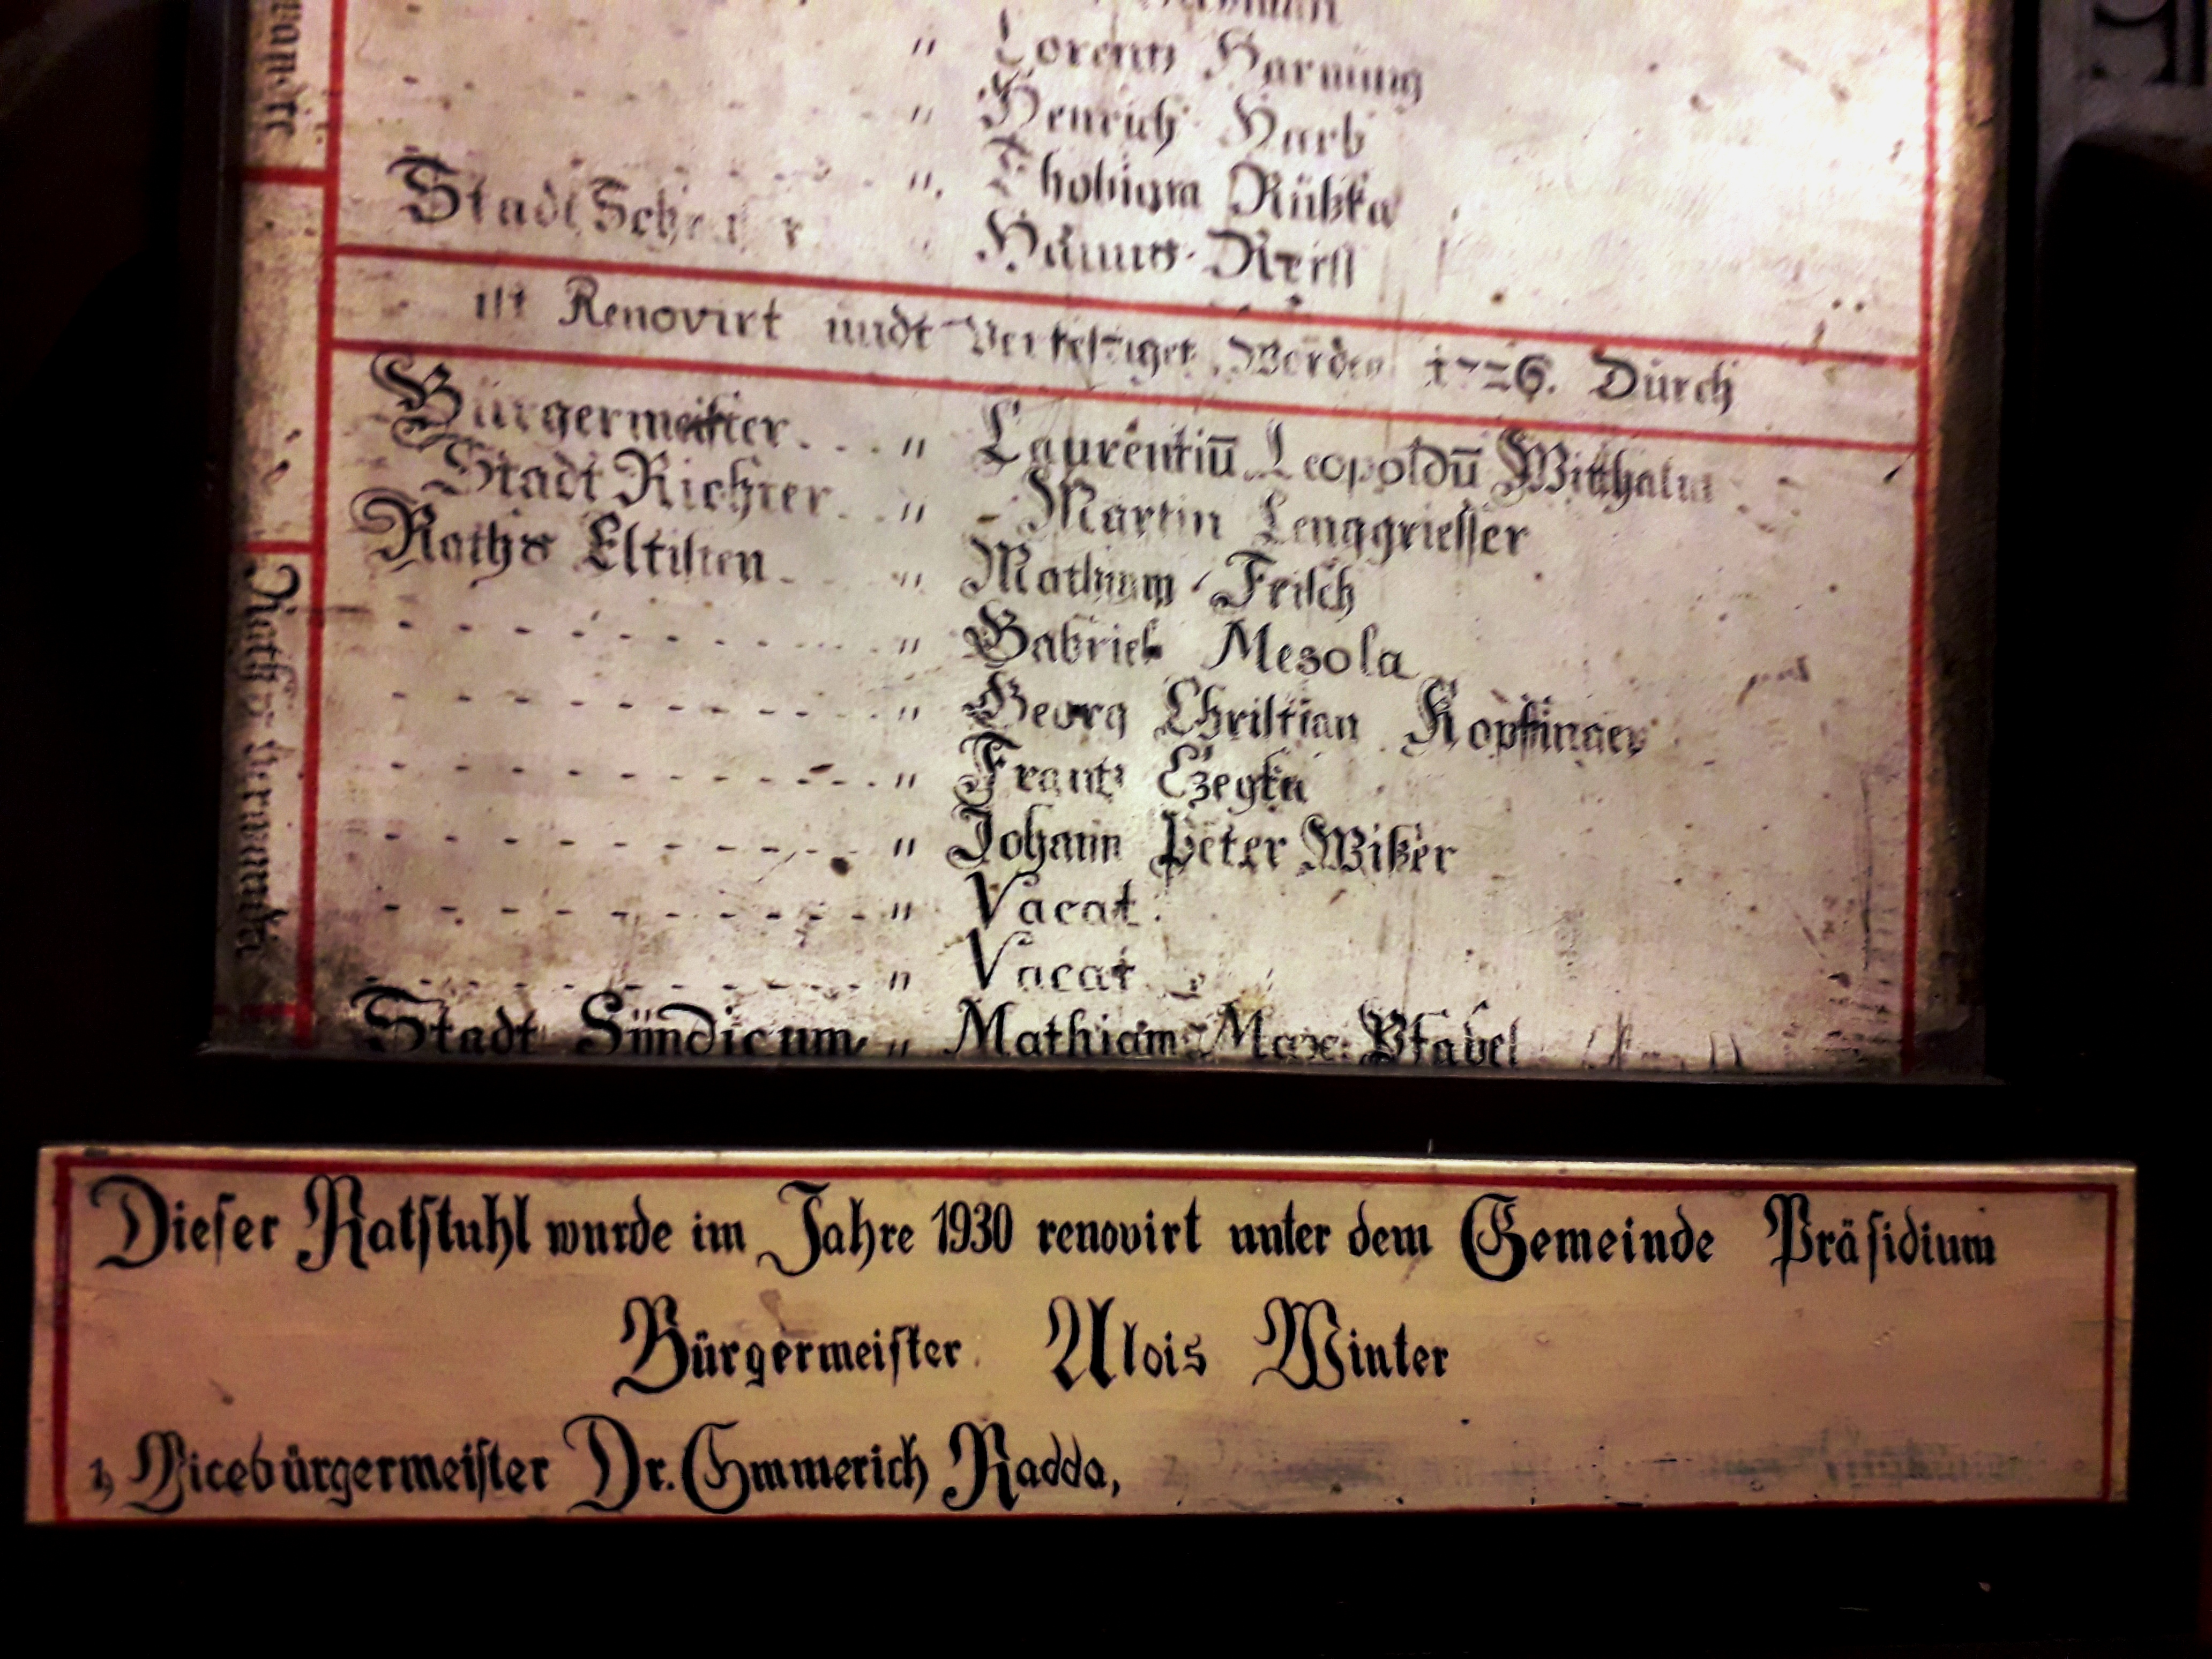 " Lorentz Harning
" Henrich Harb
" Thobiam Rüßka
Stadt " Hannß
ist Renovirt undt Verfertiget Worden 1726. Durch
Bürgermeister . . . " Laurentiū Leopoldū Witthalm
Stadt Richter . . " Martin Lenggriesser
Raths Eltisten - - - " Mathiam Frisch
- - - - - - - - - " Gabriel Mesola
- - - - - - - - - " Georg Christian Kopfinger
- - - - - - - - - " Frantz Czeyka
- - - - - - - - - " Johann Peter Wißer
- - - - - - - - - " Vacat.
- - - - - - - - - " Vacat
Stadt Sündicum " Mathiam Max: Pfabel
Dieser Ratstuhl wurde im Jahre 1930 renovirt unter dem Gemeinde Präsidium
Bürgermeister Alois Winter
1, Vicebürgermeister Dr. Emmerich Radda,